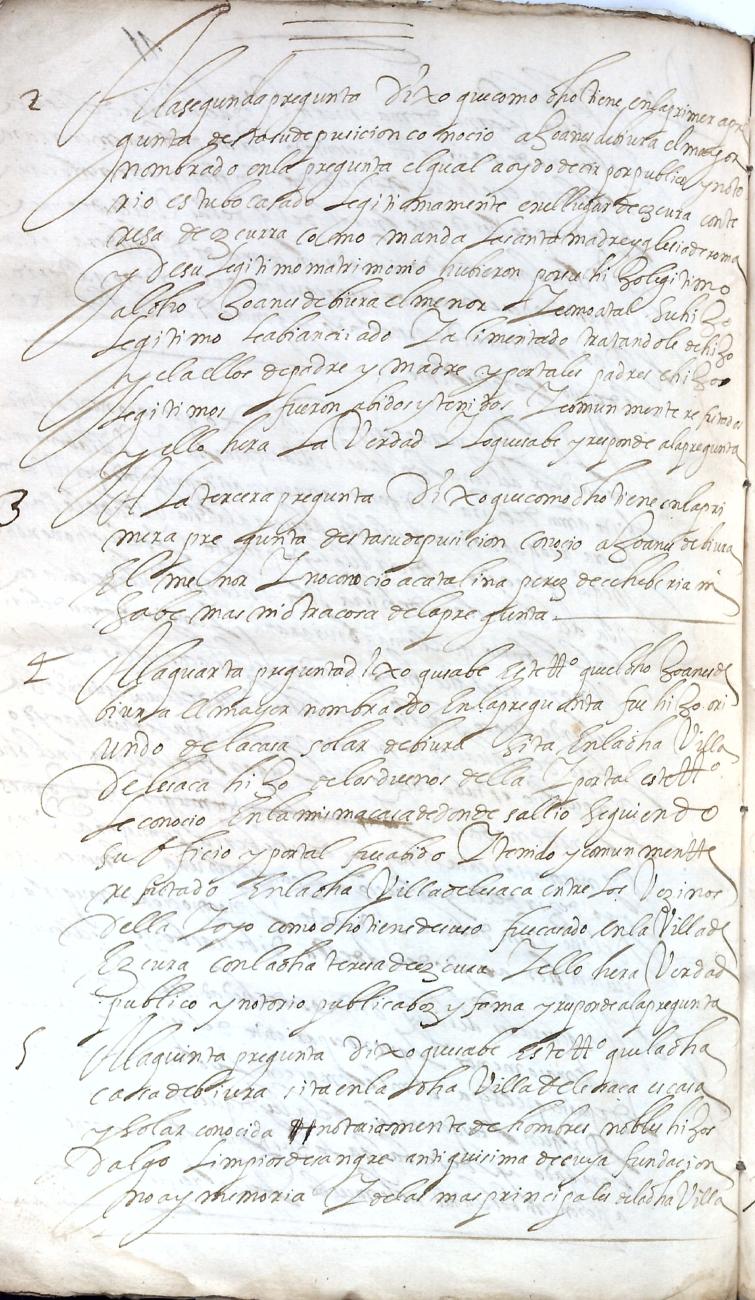 2 A la segunda pregunta Dixo que como dho tiene en la primer a pre
gunta desta su deposicion co nocio a Joanes de biura el mayor
nombrado en la pregunta el qual a oydo decir por publico y noto
rio estubo casado Legitimamente en el lugar de ezcura con te
resa de ezcurra como manda La santa madre yglesia de roma
y De su Legitimo matrimonio hubieron por su hi Jo legitimo
al dho Joanes de biura el menor Y como a tal su hi Jo
Legitimo Le abian criado Y a limentado tratandole de hiJo
y el a ellos de padre y madre y por tales padres e hiJos
Legitimos fueron abidos y tenidos Y comun mente re putados
y ello hera La Verdad Y Lo que sabe y responde a la pregunta
3 A La tercera pregunta Dixo que como dho tiene en la pri
mera pre gunta desta su deposicion conozio a Joanes de biura
El me nor Y no conocio a catalina perez de echeberria ni
sabe mas ni otra cosa de la pre gunta
4 A la quarta pregunta dixo que sabe Este tto que el dho Joanes de
biura El mayor nombrado En la pregunta fue hiJo ori
undo de la casa solar de biura Sita En la dha Villa
De lesaca hiJo de los duenos della Y por tal este tto
Le conocio En la misma casa de donde sallio Seguiendo
su oficio y por tal fue abido Y tenido y comun mentte
re putado En la dha Villa de lesaca entre Los Vezinos
Della Y oyo como dho tiene de suso fue casado en la Villa de
Ezcura con la dha teresa de ezcura Y ello hera Verdad
publico y notorio publica boz y fama y responde a la pregunta
5 A la quinta pregunta Dixo que sabe Este tto que la dha
casa de biura sita en la dha Villa de lesaca es casa
y solar conocida notoriamente de hombres nobles hiJos
Dalgo Limpios de sangre antiquisima de cuya fundacion
no ay memoria Y de las mas principales de la dha Villa